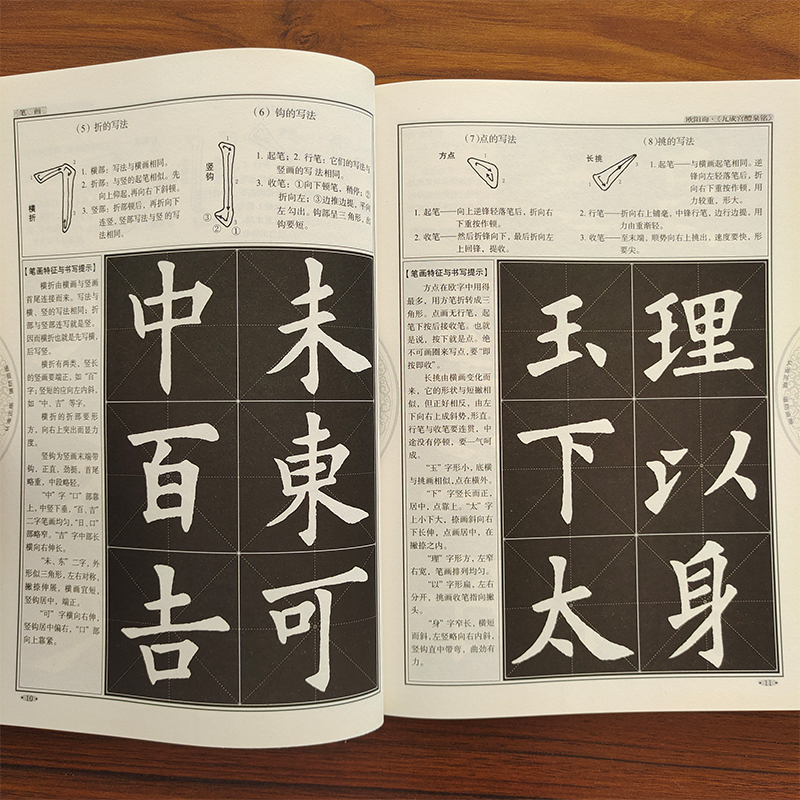 笔 画
(5) 折的写法
横折
1. 横部：写法与横画相同。
2. 折部：与竖的起笔相似。先
向上仰起,再向右下斜顿。
3. 竖部：折部顿后，再折向下
连竖，竖部写法与竖的写
法相同。
(6) 钩的写法
竖钩
1. 起笔；2. 行笔：它们的写法与
竖画的写法相同。
3. 收笔：①向下顿笔，稍停；②
折向左；③边推边提，平向
左勾出。钩部呈三角形，出
钩要短。
【笔画特征与书写提示】
横折由横画与竖画
首尾连接而来。写法与
横、竖的写法相同；折
部与竖部连写就是竖。
因而横折也就是先写横，
后写竖。
横折有两类，竖长
的竖画要端正，如“百”
字；竖短的应向左内斜，
如“中、吉”等字。
横折的折部要形
方，向右上突出而显力
度。
竖钩为竖画末端带
钩，正直、劲挺，首尾
略重，中段略轻。
“中”字“口”部靠
上，中竖下垂，“百、吉”
二字笔画均匀，“日、口”
部略窄。“吉”字中部长
横向右伸长。
“未、东”二字，外
形似三角形，左右对称，
撇捺伸展，横画宜短，
竖钩居中，端正。
“可”字横向右伸，
竖钩居中偏右，“口”部
向上靠紧。
中 未
百 東
吉 可
10
欧阳询·《九成宫醴泉铭》
(7)点的写法
方点
1. 起笔——向上逆锋轻落笔后，折向右
下重按作顿。
2. 收笔——然后折锋向下，最后折向左
上回锋，提收。
(8)挑的写法
长挑
1. 起笔——与横画起笔相同。逆
锋向左轻落笔后，折
向右下重按作顿，用
力较重，形大。
2. 行笔——折向右上铺毫，中锋行笔，边行边提，用
力由重渐轻。
3. 收笔——至末端，顺势向右上挑出，速度要快，形
要尖。
【笔画特征与书写提示】
方点在欧字中用得
最多，用方笔折转成三
角形。点画无行笔、起
笔下按后接收笔。也就
是说，按下就是点。绝
不可画圈来写点，要“即
按即收”。
长挑由横画变化而
来，它的形状与短撇相
似，但正好相反，由左
下向右上成斜势，形直。
行笔与收笔要连贯，中
途没有停顿，要一气呵
成。
“玉”字形小，底横
与挑画相似，点在横外。
“下”字竖长而正，
居中，点靠上。“太”字
上小下大，捺画斜向右
下长伸，点画居中，在
撇捺之内。
“理”字形方，左窄
右宽，笔画排列均匀。
“以”字形扁，左右
分开，挑画收笔指向撇
头。
“身”字窄长，横短
而斜，左竖略向右内斜，
竖钩直中带弯，曲劲有
力。
玉 理
下 以
太 身
11